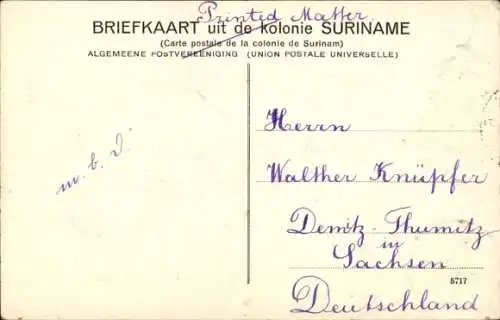 Printed Matter.
BRIEFKAART uit de kolonie SURINAME
(Carte postale de la colonie de Surinam)
ALGEMEENE POSTVEREENIGING (UNION POSTALE UNIVERSELLE)
m. b. d.
Herrn
Walther Knüpfer
Demitz-Thumitz
in
Sachsen
5717
Deutschland